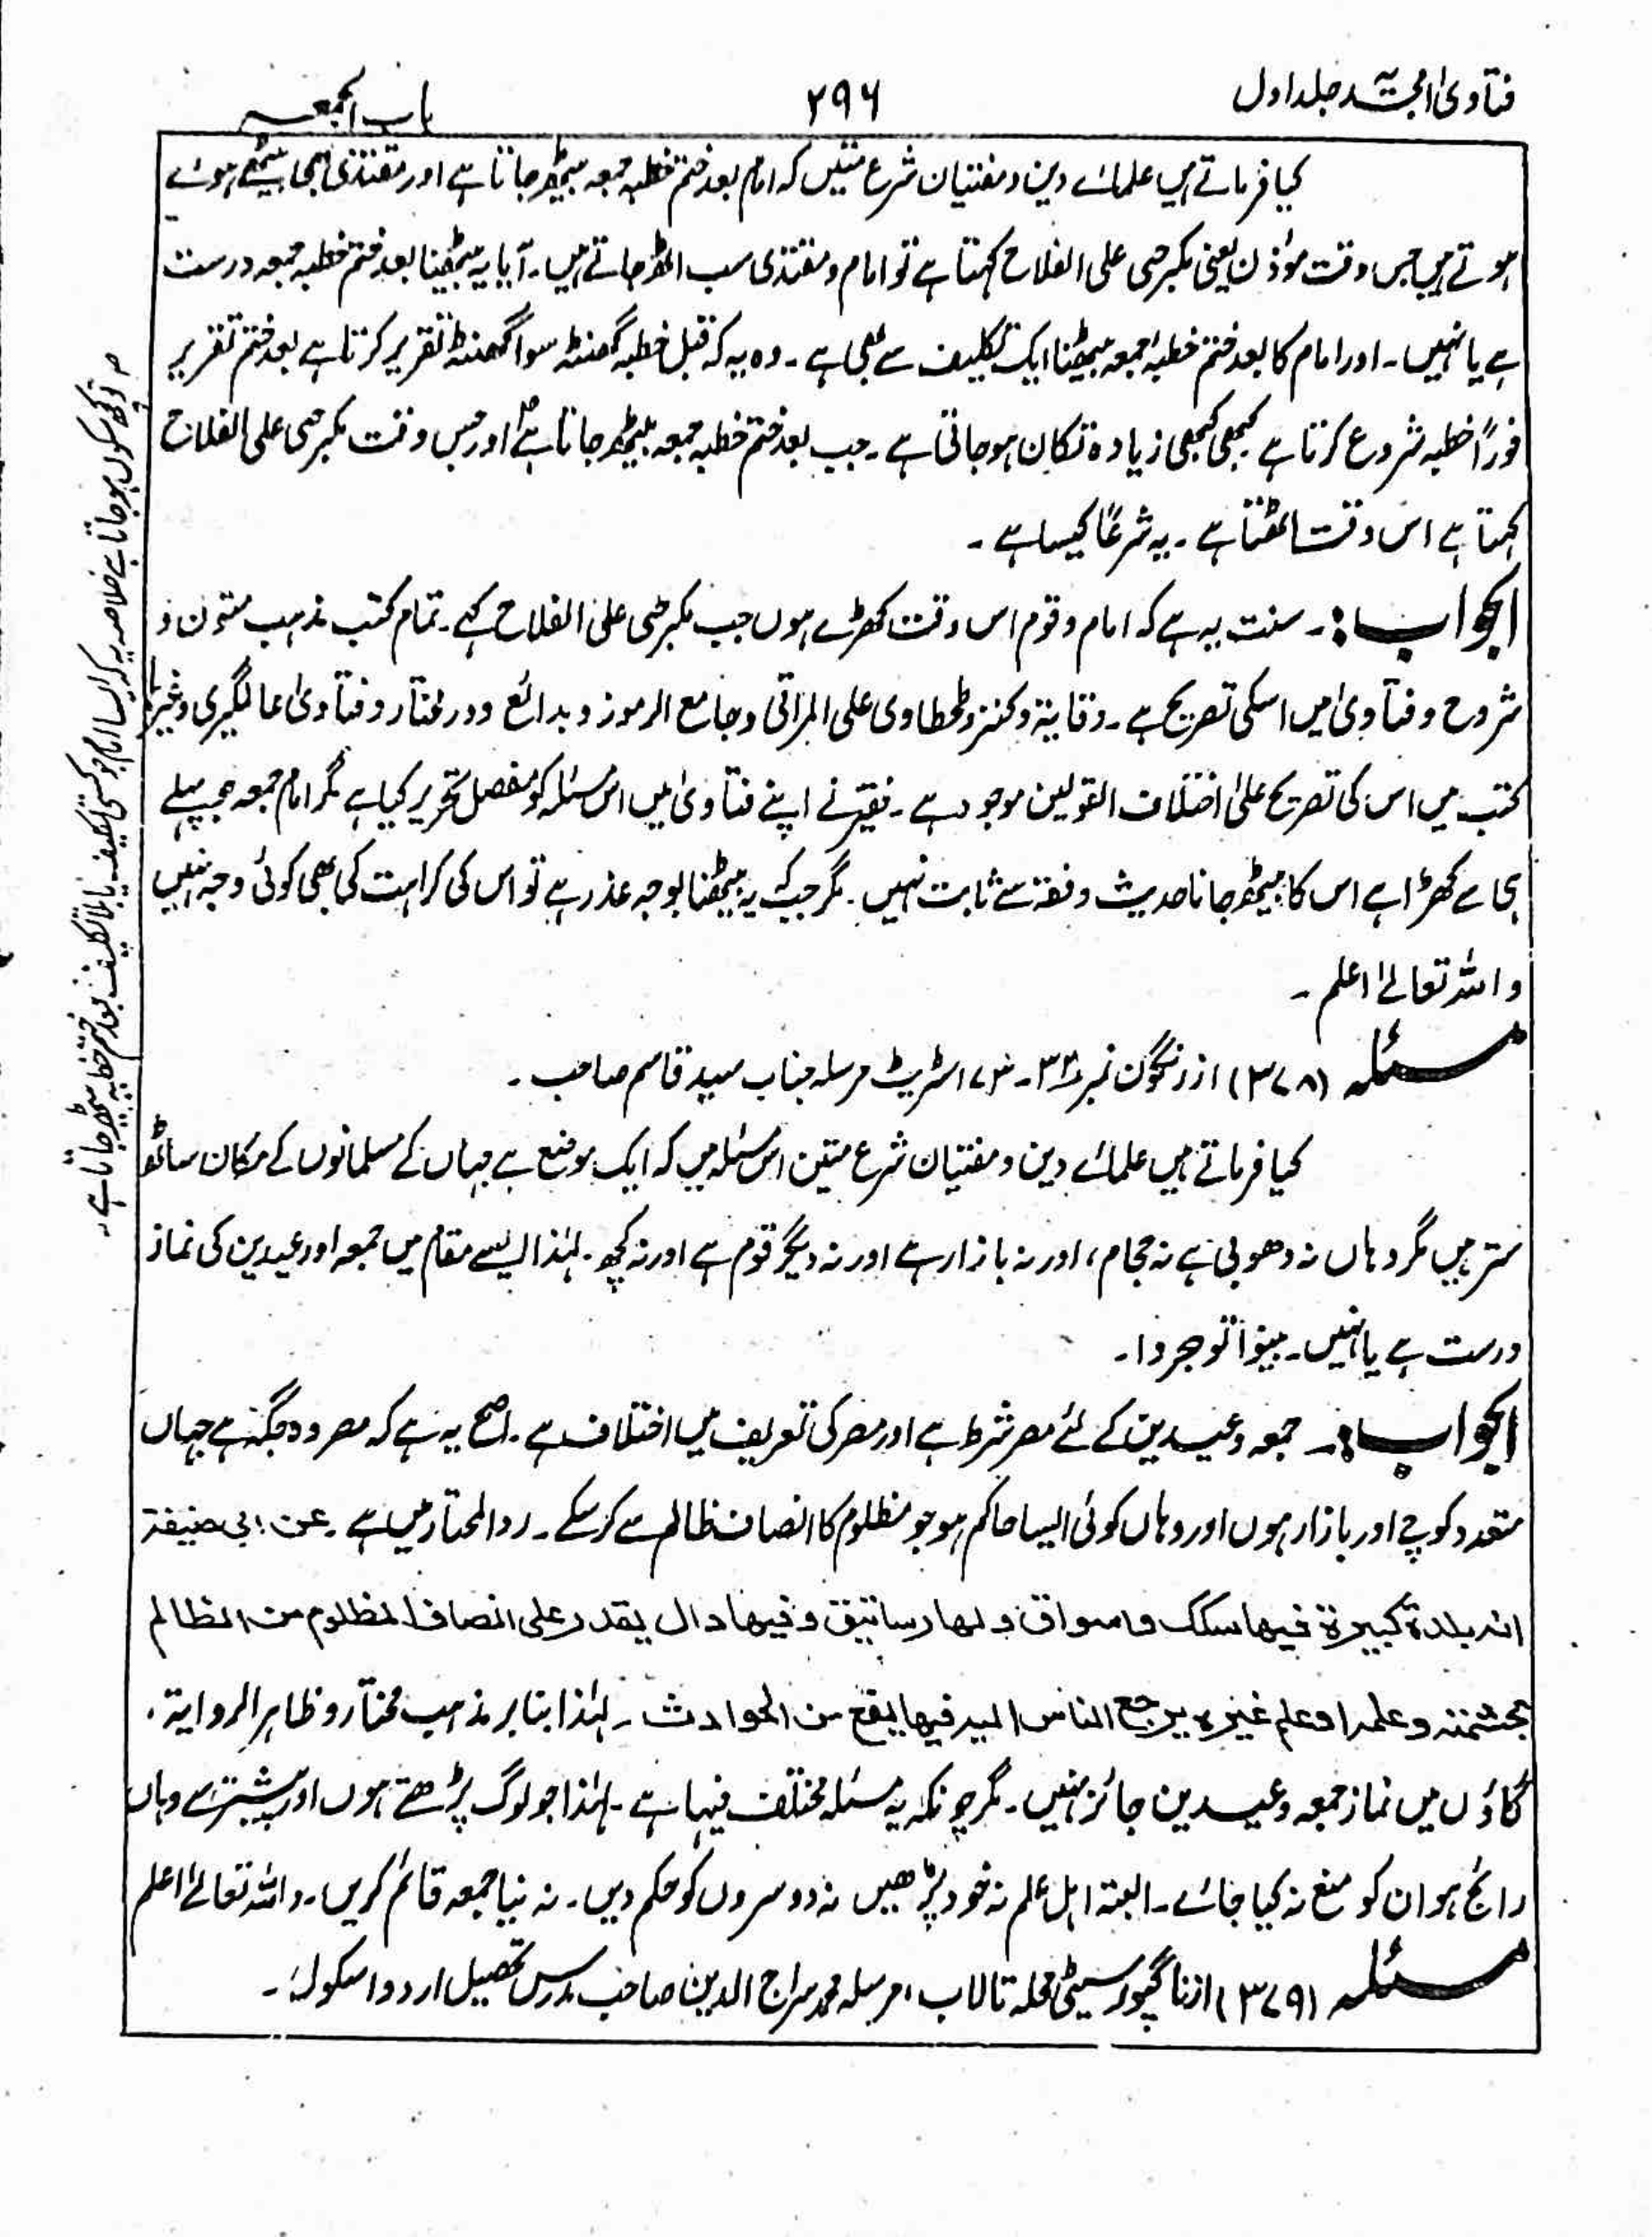 فتاویٰ امجدیہ جلد اول
۲۹۶
باب الجمعہ
کیا فرماتے ہیں علمائے دین و مفتیان شرع متین کہ امام بعد ختم خطبہ جمعہ بیٹھ جاتا ہے اور مقتدی بھی بیٹھے ہوئے
ہوتے ہیں جس وقت مؤذن یعنی مکبر حی علی الفلاح کہتا ہے تو امام و مقتدی سب اٹھ جاتے ہیں۔ آیا یہ بیٹھنا بعد ختم خطبہ جمعہ درست
ہے یا نہیں۔ اور امام کا بعد ختم خطبۂ جمعہ بیٹھنا ایک تکلیف سے بھی ہے۔ وہ یہ کہ قبل خطبہ گھنٹہ سوا گھنٹہ تقریر کرتا ہے بعد ختم تقریر
فوراً خطبہ شروع کرتا ہے کبھی کبھی زیادہ تکان ہو جاتی ہے۔ جب بعد ختم خطبہ جمعہ بیٹھ جاتا ہے اور جس وقت مکبر حی علی الفلاح
کہتا ہے اس وقت اٹھتا ہے۔ یہ شرعًا کیسا ہے۔
الجواب:۔ سنت یہ ہے کہ امام و قوم اس وقت کھڑے ہوں جب مکبر حی علی الفلاح کہے۔ تمام کتب مذہب متون و
شروح و فتاویٰ میں اسکی تصریح ہے۔ وقایۃ و کنز و طحطاوی علی المراقی و جامع الرموز و بدائع و درمختار و فتاویٰ عالمگیری وغیرہا
کتب میں اس کی تصریح علیٰ اختلاف القولین موجود ہے۔ فقیر نے اپنے فتاویٰ میں اس مسئلہ کو مفصل تحریر کیا ہے مگر امام جمعہ جو پہلے
ہی سے کھڑا ہے اس کا بیٹھ جانا حدیث و فقہ سے ثابت نہیں۔ مگر جب کہ یہ بیٹھنا بوجہ عذر ہے تو اس کی کراہت کی بھی کوئی وجہ نہیں
واللہ تعالیٰ اعلم۔
مسئلہ (۳۷۸) از رنگون نمبر ۳۳۔ ۷۳ اسٹریٹ مرسلہ جناب سید قاسم صاحب۔
کیا فرماتے ہیں علمائے دین و مفتیان شرع متین اس مسئلہ میں کہ ایک موضع ہے جہاں کے مسلمانوں کے مکان ساٹھ
ستر ہیں مگر وہاں نہ دھوبی ہے نہ حجام، اور نہ بازار ہے اور نہ دیگر قوم ہے اور نہ کچھ۔ لہٰذا ایسے مقام میں جمعہ اور عیدین کی نماز
درست ہے یا نہیں۔ بینوا توجروا۔
الجواب:۔ جمعہ و عیدین کے لئے مصر شرط ہے اور مصر کی تعریف میں اختلاف ہے۔ اصح یہ ہے کہ مصر وہ جگہ ہے جہاں
متعدد کوچے اور بازار ہوں اور وہاں کوئی ایسا حاکم ہو جو مظلوم کا انصاف ظالم سے کر سکے۔ ردالمحتار میں ہے۔ عن ابی حنیفۃ
انہ بلدۃ کبیرۃ فیہا سکک و اسواق و لہا رساتیق و فیہا وال یقدر علی انصاف المظلوم من الظالم
بحشمتہ و علمہ او علم غیرہ یرجع الناس الیہ فیہا یقع من الحوادث۔ لہٰذا بنابر مذہب مختار و ظاہر الروایۃ،
گاؤں میں نماز جمعہ و عیدین جائز نہیں۔ مگر چونکہ یہ مسئلہ مختلف فیہا ہے۔ لہٰذا جو لوگ پڑھتے ہوں اور پیشتر سے وہاں
رائج ہو ان کو منع نہ کیا جائے۔ البتہ اہل علم نہ خود پڑھیں نہ دوسروں کو حکم دیں۔ نہ نیا جمعہ قائم کریں۔ واللہ تعالیٰ اعلم
مسئلہ (۳۷۹) از ناگپور سیٹی محلہ تالاب، مرسلہ محمد سراج الدین صاحب مدرس تحصیل اردو اسکول۔
تو کچھ سکون ہو جاتا ہے خلاصہ یہ کہ ایسا امام جو کسی تکلیف یا بلا تکلیف بعد ختم خطبہ بیٹھ جاتا ہے۔